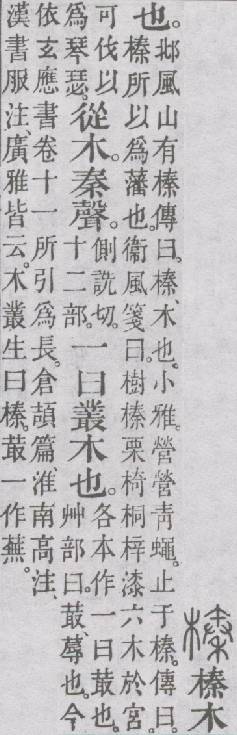 榛木
也。邶風山有榛傳曰。榛、木也。小雅。營營青蠅。止于榛。傳曰。
榛所以爲藩也。衞風箋曰。樹榛栗椅桐梓漆六木於宮。
可伐以爲琴瑟。從木秦聲。側詵切。十二部。一曰叢木也。各本作一曰菆也。艸部曰。菆、蓐也。今
依玄應書卷十一所引爲長。倉頡篇、淮南高注、
漢書服注、廣雅皆云。木叢生曰榛。菆一作蕪。